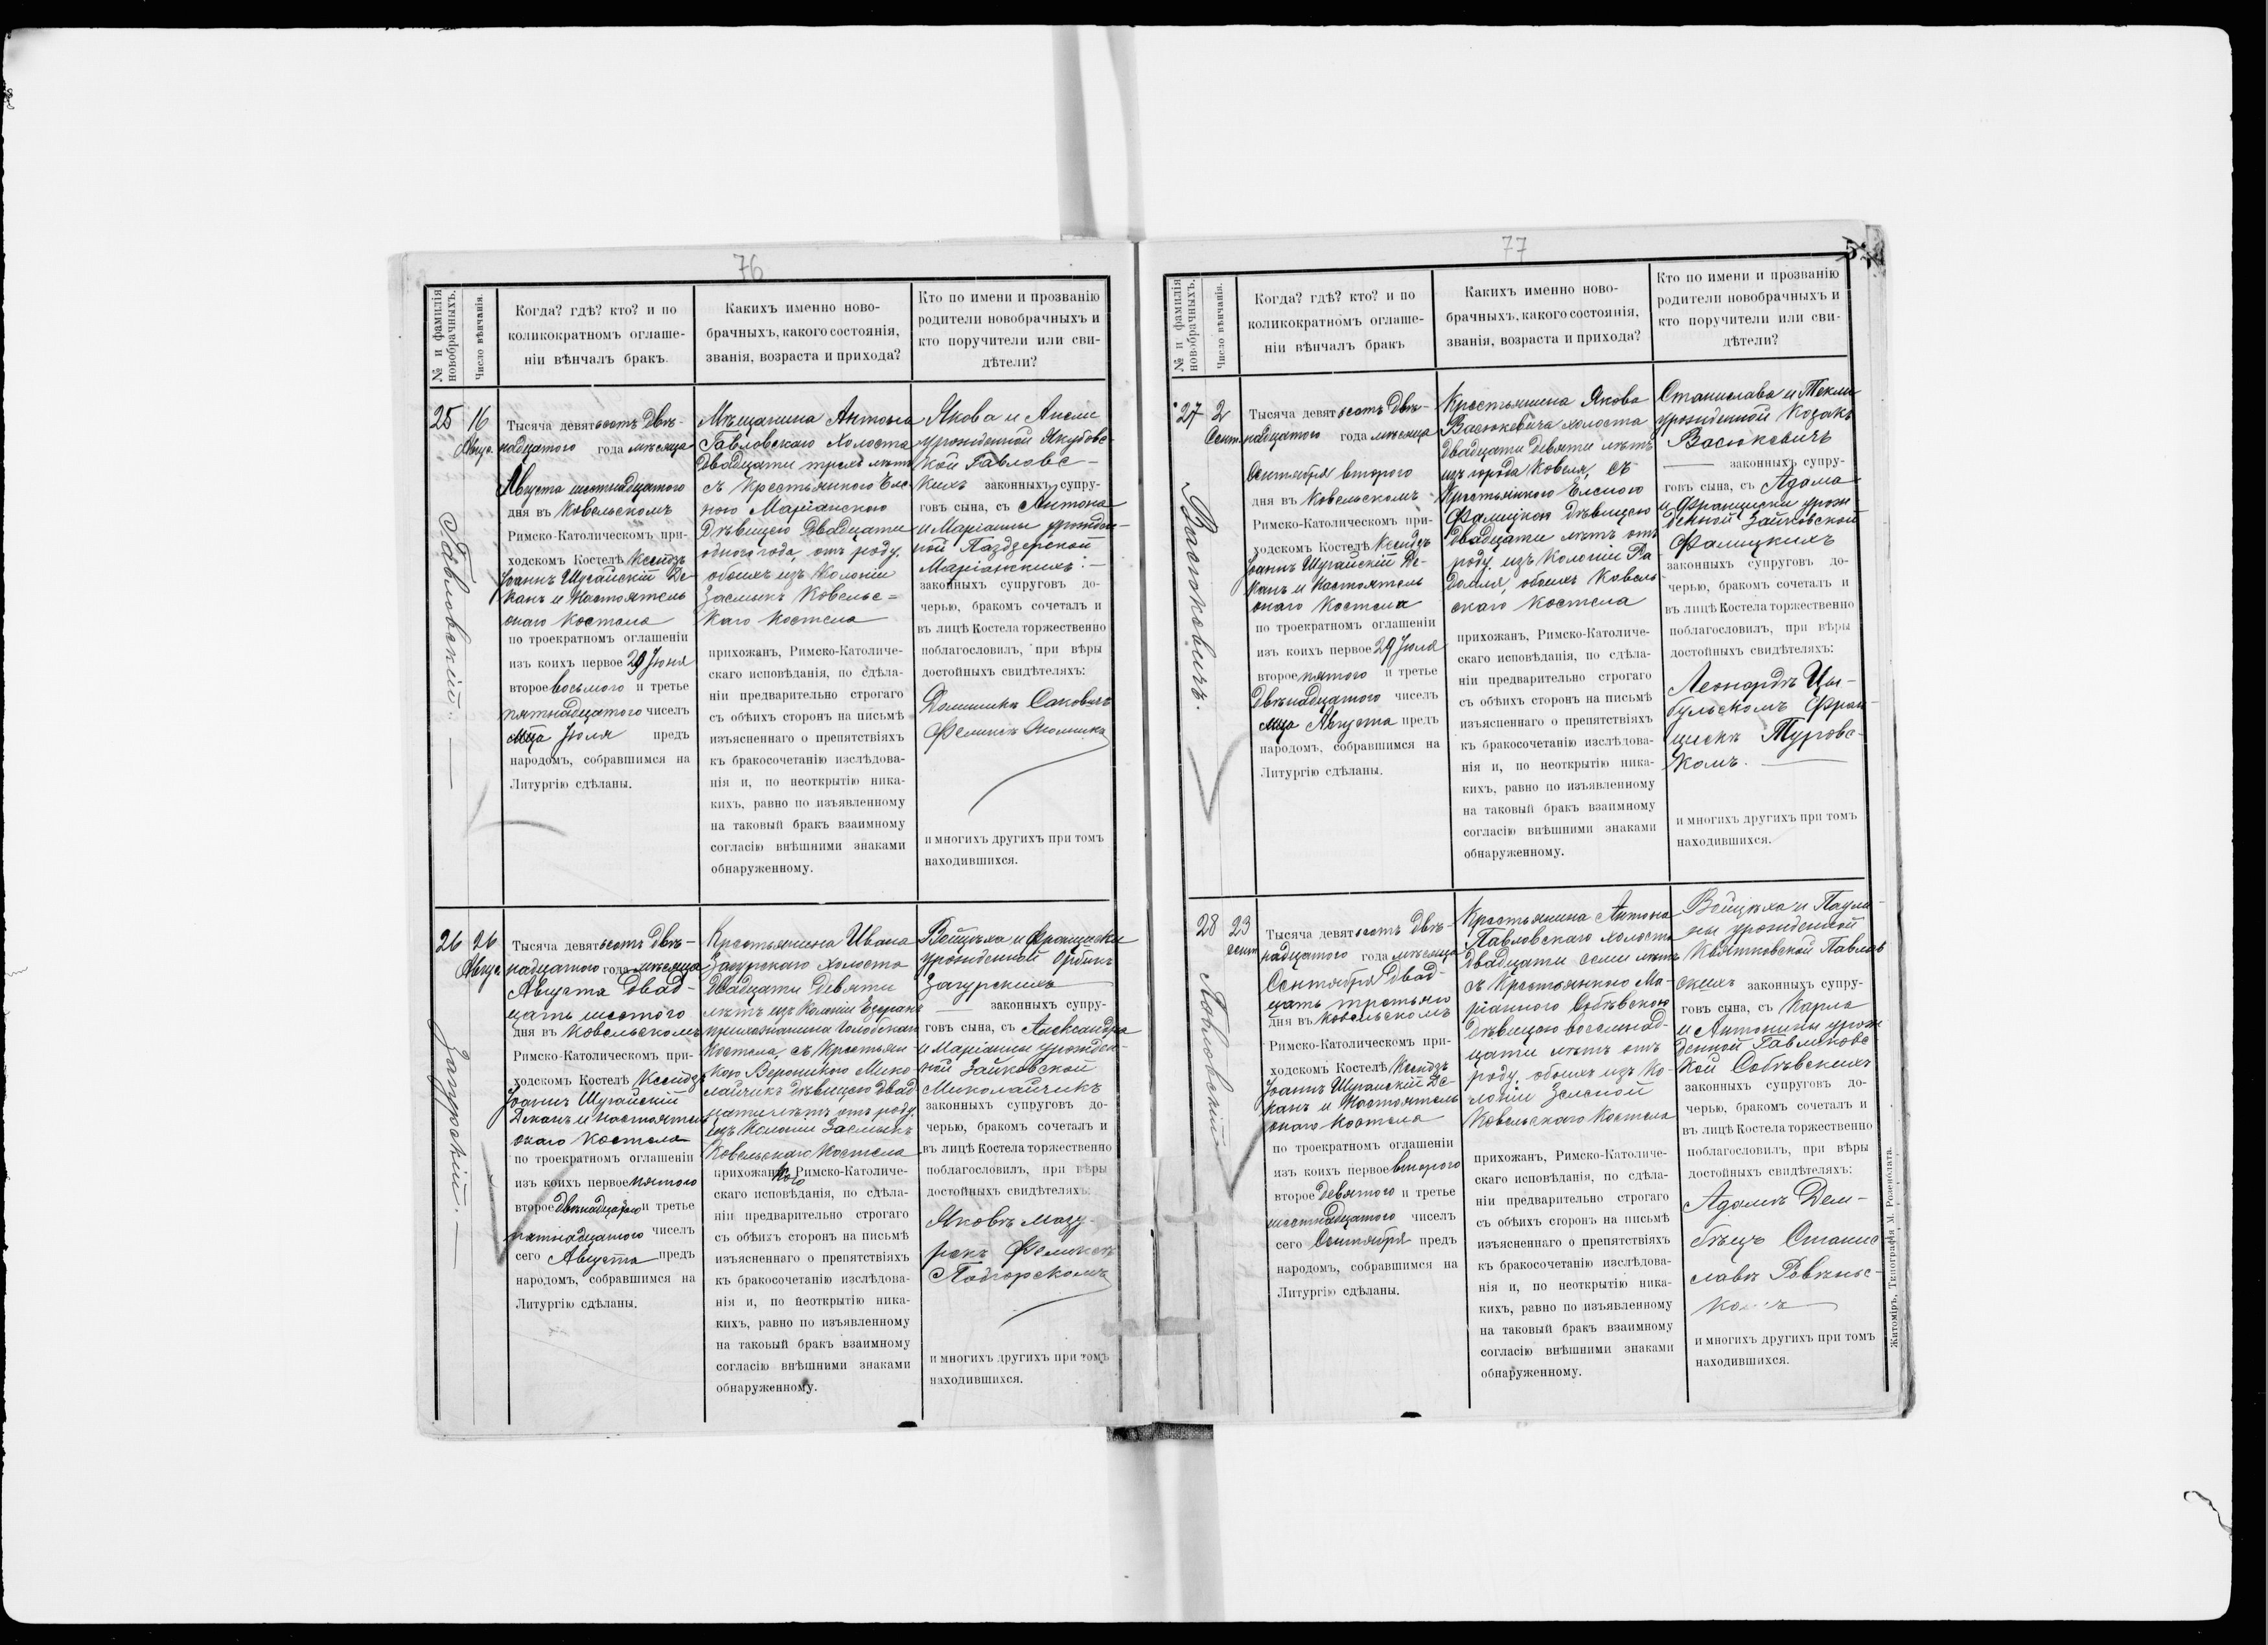 76
№ и фамилія
новобрачныхъ.
Число вѣнчанія.
Когда? гдѣ? кто? и по
коликократномъ оглаше-
ніи вѣнчалъ бракъ.
Каких именно ново-
брачныхъ, какого состоянія,
званія, возраста и прихода?
Кто по имени и прозванію
родители новобрачныхъ и
кто поручители или сви-
дѣтели?
25
16
Авгус.
Гавловскій.
Тысяча девятьсотъ двѣ-
надцатого года мѣсяца
Августа шестнадцатого
дня въ Ковельскомъ
Римско-Католическомъ при-
ходскомъ Костелѣ Ксендзъ
Іоаннъ Шугайскій Де-
канъ и Настоятель
онаго Костела
по троекратномъ оглашеніи
изъ коихъ первое 29 Іюня
второе восьмого и третье
пятнадцатого чиселъ
мца Іюля предъ
народомъ, собравшимся на
Литургію сдѣланы.
Мѣщанина Антона
Гавловскаго холоста
двадцати трехъ лѣтъ
съ Крестьянкою Еле-
ною Маріанскою
дѣвицею двадцати
одного года отъ роду,
обоихъ изъ Колоніи
Засмыкъ Ковельс-
каго Костела
прихожанъ, Римско-Католиче-
скаго исповѣданія, по сдѣла-
ніи предварительно строгаго
съ обѣихъ сторонъ на письмѣ
изъясненнаго о препятствіяхъ
къ бракосочетанію изслѣдова-
нія и, по неоткрытію ника-
кихъ, равно по изъявленному
на таковый бракъ взаимному
согласію внѣшними знаками
обнаруженному.
Якова и Анели
урожденной Якубовс-
кой Гавловс-
кихъ законныхъ супру-
говъ сына, съ Антона
и Маріанны урожден-
ной Паздзерской
Маріанскихъ.
законныхъ супруговъ до-
черью, бракомъ сочеталъ и
въ лицѣ Костела торжественно
поблагословилъ, при вѣры
достойныхъ свидѣтеляхъ:
Доминикъ Саковичъ
Феликсъ
и многихъ другихъ при томъ
находившихся.
26
26
Авгус.
Загурскій.
Тысяча девятьсотъ двѣ-
надцатого года мѣсяца
Августа двад-
цать шестого
дня въ Ковельскомъ
Римско-Католическомъ при-
ходскомъ Костелѣ Ксендзъ
Іоаннъ Шугайскій
Деканъ и Настоятель
онаго Костела
по троекратномъ оглашеніи
изъ коихъ первое пятого
второе двѣнадцатого и третье
пятнадцатого чиселъ
сего Августа предъ
народомъ, собравшимся на
Литургію сдѣланы.
Крестьянина Ивана
Загурскаго холоста
двадцати девяти
лѣтъ изъ Колоніи
прихожанина
Костела, съ Крестьян-
кою Вероникою Мико-
лайчикъ дѣвицею двад-
цати лѣтъ отъ роду,
изъ Колоніи Засмыкъ
Ковельскаго Костела
прихожанкою Римско-Католиче-
скаго исповѣданія, по сдѣла-
ніи предварительно строгаго
съ обѣихъ сторонъ на письмѣ
изъясненнаго о препятствіяхъ
къ бракосочетанію изслѣдова-
нія и, по неоткрытію ника-
кихъ, равно по изъявленному
на таковый бракъ взаимному
согласію внѣшними знаками
обнаруженному.
Войцѣха и Францишки
урожденной
Загурскихъ
законныхъ супру-
говъ сына, съ Александра
и Маріанны урожден-
ной Зайковской
Миколайчикъ
законныхъ супруговъ до-
черью, бракомъ сочеталъ и
въ лицѣ Костела торжественно
поблагословилъ, при вѣры
достойныхъ свидѣтеляхъ:
Яковъ Мазу-
рекъ Феликсъ
Подгорскомъ
и многихъ другихъ при томъ
находившихся.
77
№ и фамилія
новобрачныхъ.
Число вѣнчанія.
Когда? гдѣ? кто? и по
коликократномъ оглаше-
ніи вѣнчалъ бракъ
Какихъ именно ново-
брачныхъ, какого состоянія,
званія, возраста и прихода?
Кто по имени и прозванію
родители новобрачныхъ и
кто поручители или сви-
дѣтели?
27
2
Сент.
Васюкевичъ.
Тысяча девятьсотъ двѣ-
надцатого года мѣсяца
Сентября второго
дня въ Ковельскомъ
Римско-Католическомъ при-
ходскомъ Костелѣ Ксендзъ
Іоаннъ Шугайскій Де-
канъ и Настоятель
онаго Костела
по троекратномъ оглашеніи
изъ коихъ первое 29 Іюля
второе пятого и третье
двѣнадцатого чиселъ
мца Августа предъ
народомъ, собравшимся на
Литургію сдѣланы.
Крестьянина Якова
Васюкевича холоста
двадцати девяти лѣтъ
изъ города Ковеля, съ
Крестьянкою Еленою
Фалицкою дѣвицею
двадцати лѣтъ отъ
роду изъ Колоніи Ра-
домля, обоихъ Ковель-
скаго Костела
прихожанъ, Римско-Католиче-
скаго исповѣданія, по сдѣла-
ніи предварительно строгаго
съ обѣихъ сторонъ на письмѣ
изъясненнаго о препятствіяхъ
къ бракосочетанію изслѣдова-
нія и, по неоткрытію ника-
кихъ, равно по изъявленному
на таковый бракъ взаимному
согласію внѣшними знаками
обнаруженному.
Станислава и Текли
урожденной Козакъ
Васюкевичъ
законныхъ супру-
говъ сына, съ Адама
и Францишки урож-
денной Зайковской
Фалицкихъ
законныхъ супруговъ до-
черью, бракомъ сочеталъ и
въ лицѣ Костела торжественно
поблагословилъ, при вѣры
достойныхъ свидѣтеляхъ:
Леонардъ Цы-
бульскомъ Фран-
цискъ Туровс-
комъ.
и многихъ другихъ при томъ
находившихся.
28
23
Сент.
Павловскій
Тысяча девятьсотъ двѣ-
надцатого года мѣсяца
Сентября двад-
цать третьяго
дня въ Ковельскомъ
Римско-Католическомъ при-
ходскомъ Костелѣ Ксендзъ
Іоаннъ Шугайскій Де-
канъ и Настоятель
онаго Костела
по троекратномъ оглашеніи
изъ коихъ первое второго
второе девятого и третье
шестнадцатого чиселъ
сего Сентября предъ
народомъ, собравшимся на
Литургію сдѣланы.
Крестьянина Антона
Павловскаго холоста
двадцати семи лѣтъ
съ Крестьянкою Ма-
ріанною Собѣвскою
дѣвицею восемнад-
цати лѣтъ отъ
роду, обоихъ изъ Ко-
лоніи Зеленой
Ковельскаго Костела
прихожанъ, Римско-Католиче-
скаго исповѣданія, по сдѣла-
ніи предварительно строгаго
съ обѣихъ сторонъ на письмѣ
изъясненнаго о препятствіяхъ
къ бракосочетанію изслѣдова-
нія и, по неоткрытію ника-
кихъ, равно по изъявленному
на таковый бракъ взаимному
согласію внѣшними знаками
обнаруженному.
Войцѣха и Паули-
ны урожденной
Квятковской Павлов-
скихъ законныхъ супру-
говъ сына, съ Карла
и Антонины урож-
денной Гавликовс-
кой Собѣвскихъ
законныхъ супруговъ до-
черью, бракомъ сочеталъ и
въ лицѣ Костела торжественно
поблагословилъ, при вѣры
достойныхъ свидѣтеляхъ:
Адамъ Дем-
бѣцъ Станис-
лавъ Ровенс-
комъ
и многихъ другихъ при томъ
находившихся.
Житоміръ, Типографія М. Розенблата.